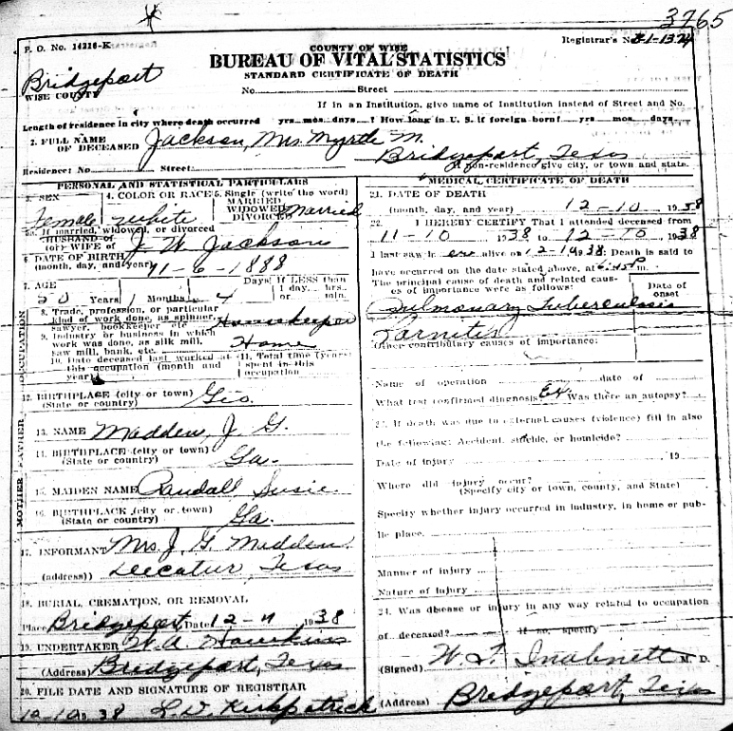 3765
F. O. No. 14216-K
COUNTY OF WISE
Registrar's No.
BUREAU OF VITAL STATISTICS
STANDARD CERTIFICATE OF DEATH
Bridgeport
WISE COUNTY
No. Street
If in an Institution, give name of Institution instead of Street and No.
Length of residence in city where death occurred yrs. mos. days. ? How long in U. S. if foreign born? yrs. mos. days.
2. FULL NAME OF DECEASED Jackson, Mrs. Myrtle M.
Residence: No. Street: Bridgeport, Texas
If non-residence give city, or town and state.
PERSONAL AND STATISTICAL PARTICULARS
3. SEX Female
4. COLOR OR RACE White
5. Single (write the word) MARRIED WIDOWED DIVORCED Married
If married, widowed, or divorced
HUSBAND OF
(or) WIFE of J. W. Jackson
6. DATE OF BIRTH
(month, day, and year) 11-6-1888
7. AGE 50 Years 1 Months 4 Days
If LESS than 1 day, hrs. or min.
OCCUPATION
8. Trade, profession, or particular kind of work done, as spinner, sawyer, bookkeeper etc. Housekeeper
9. Industry or business in which work was done, as silk mill, saw mill, bank, etc. Home
10. Date deceased last worked at this occupation (month and year)
11. Total time (years) spent in this occupation
12. BIRTHPLACE (city or town)
(State or country) Geo.
FATHER
13. NAME Madden, J. G.
14. BIRTHPLACE (city or town)
(State or country) Ga.
MOTHER
15. MAIDEN NAME Randall Susie
16. BIRTHPLACE (city or town)
(State or country) Ga.
17. INFORMANT Mrs. J. G. Madden
(address) Decatur, Texas
18. BURIAL, CREMATION, OR REMOVAL
Place Bridgeport Date 12-11 1938
19. UNDERTAKER W. A. Hawkins
(Address) Bridgeport, Texas
20. FILE DATE AND SIGNATURE OF REGISTRAR
12-10 38 L. D. Kirkpatrick
MEDICAL CERTIFICATE OF DEATH
21. DATE OF DEATH
(month, day, and year) 12-10 1938
22. I HEREBY CERTIFY That I attended deceased from
11-10 1938 to 12-10 1938
I last saw h er alive on 12-10 1938. Death is said to
have occurred on the date stated above, at 6:45 P m.
The principal cause of death and related causes of importance were as follows:
Date of onset
Pulmonary Tuberculosis
Other contributory causes of importance:
Name of operation date of
What test confirmed diagnosis? Ex. Was there an autopsy?
23. If death was due to external causes (violence) fill in also
the following: Accident, suicide, or homicide?
Date of injury 19
Where did injury occur?
(Specify city or town, county, and State)
Specify whether injury occurred in industry, in home or public place.
Manner of injury
Nature of Injury
24. Was disease or injury in any way related to occupation
of deceased? If so, specify
(Signed) W. L. Inabnett M. D.
(Address) Bridgeport, Texas